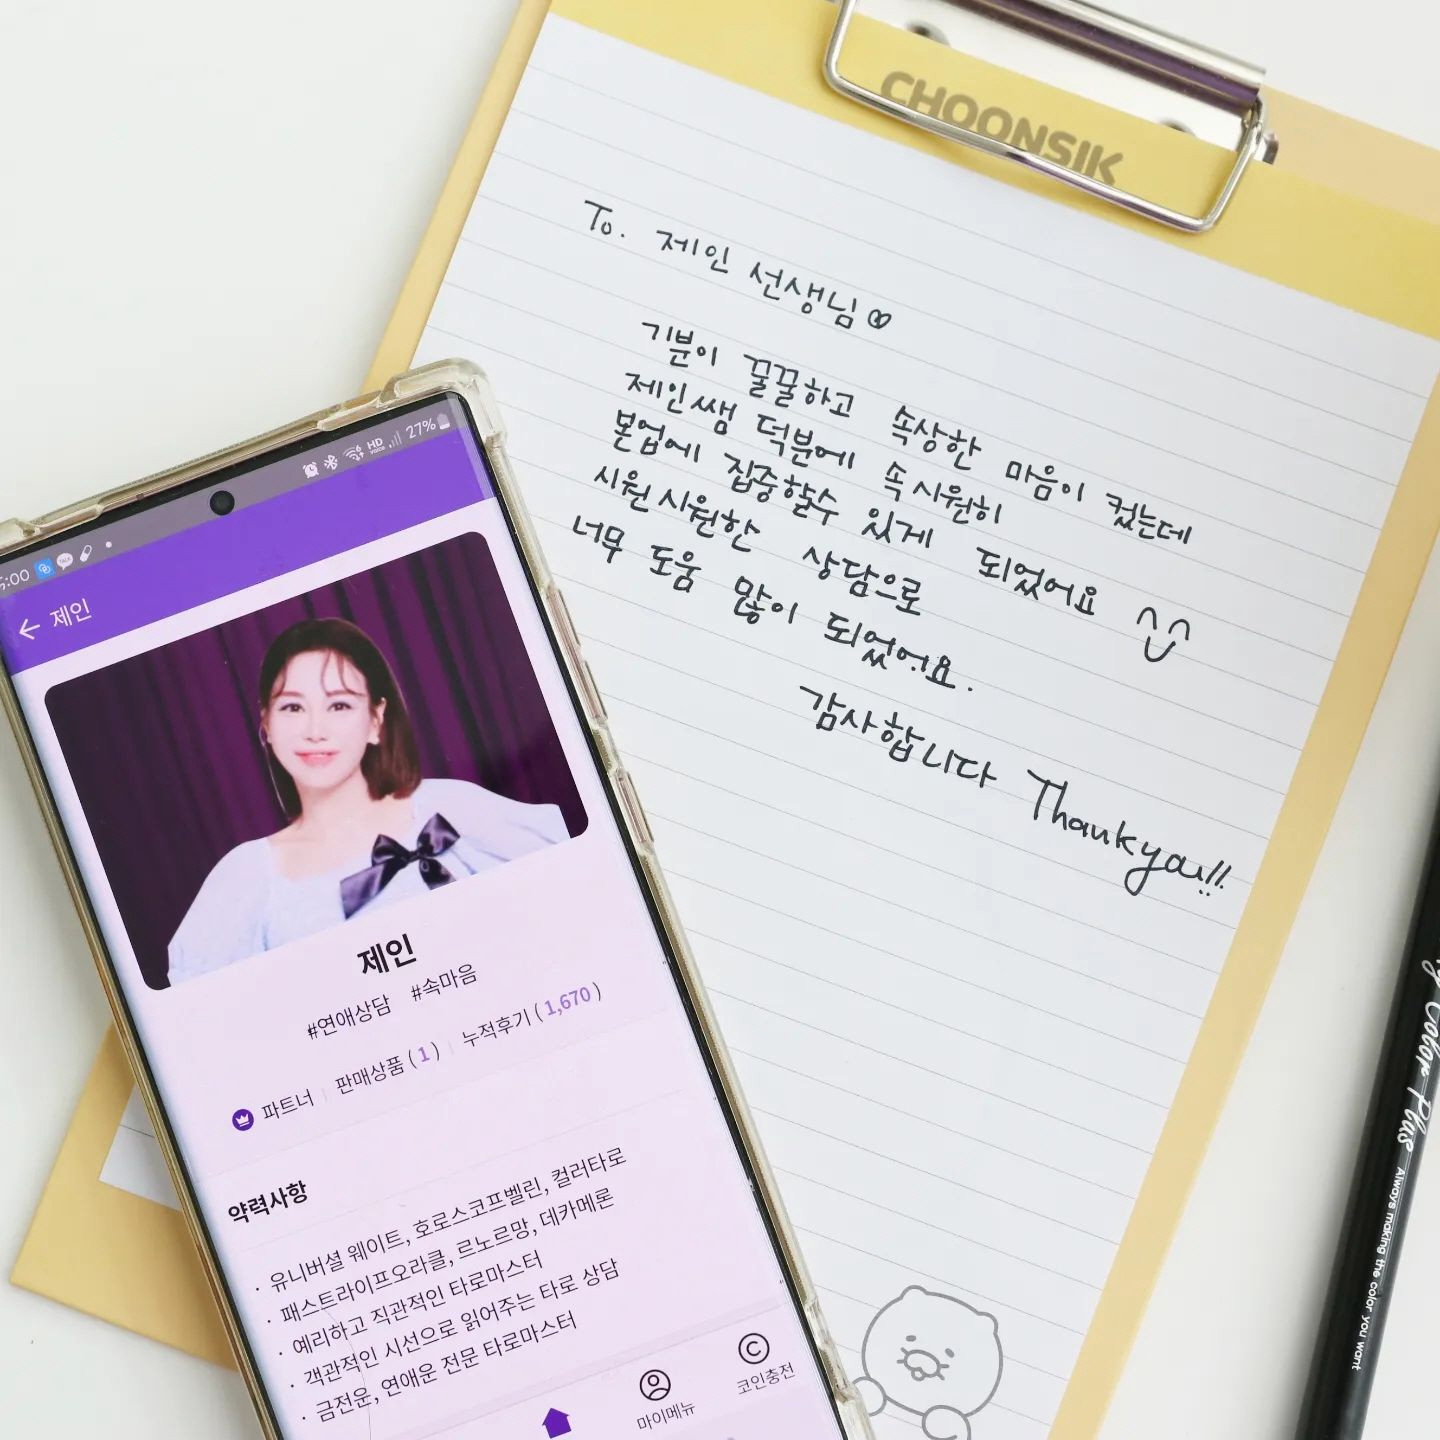 CHOONSIK
To. 제인 선생님♡
기분이 꿀꿀하고 속상한 마음이 컸는데
제인쌤 덕분에 속 시원히
본업에 집중할수 있게 되었어요
시원시원한 상담으로
너무 도움 많이 되었어요.
감사합니다 Thank you!!
5:00
HD voice
27%
← 제인
제인
#연애상담 #속마음
파트너 | 판매상품 (1) | 누적후기 (1,670)
약력사항
· 유니버셜 웨이트, 호로스코프벨린, 컬러타로
· 패스트라이프오라클, 르노르망, 데카메론
· 예리하고 직관적인 타로마스터
· 객관적인 시선으로 읽어주는 타로 상담
· 금전운, 연애운 전문 타로마스터
마이메뉴
코인충전
Color Plus Always making the color you want